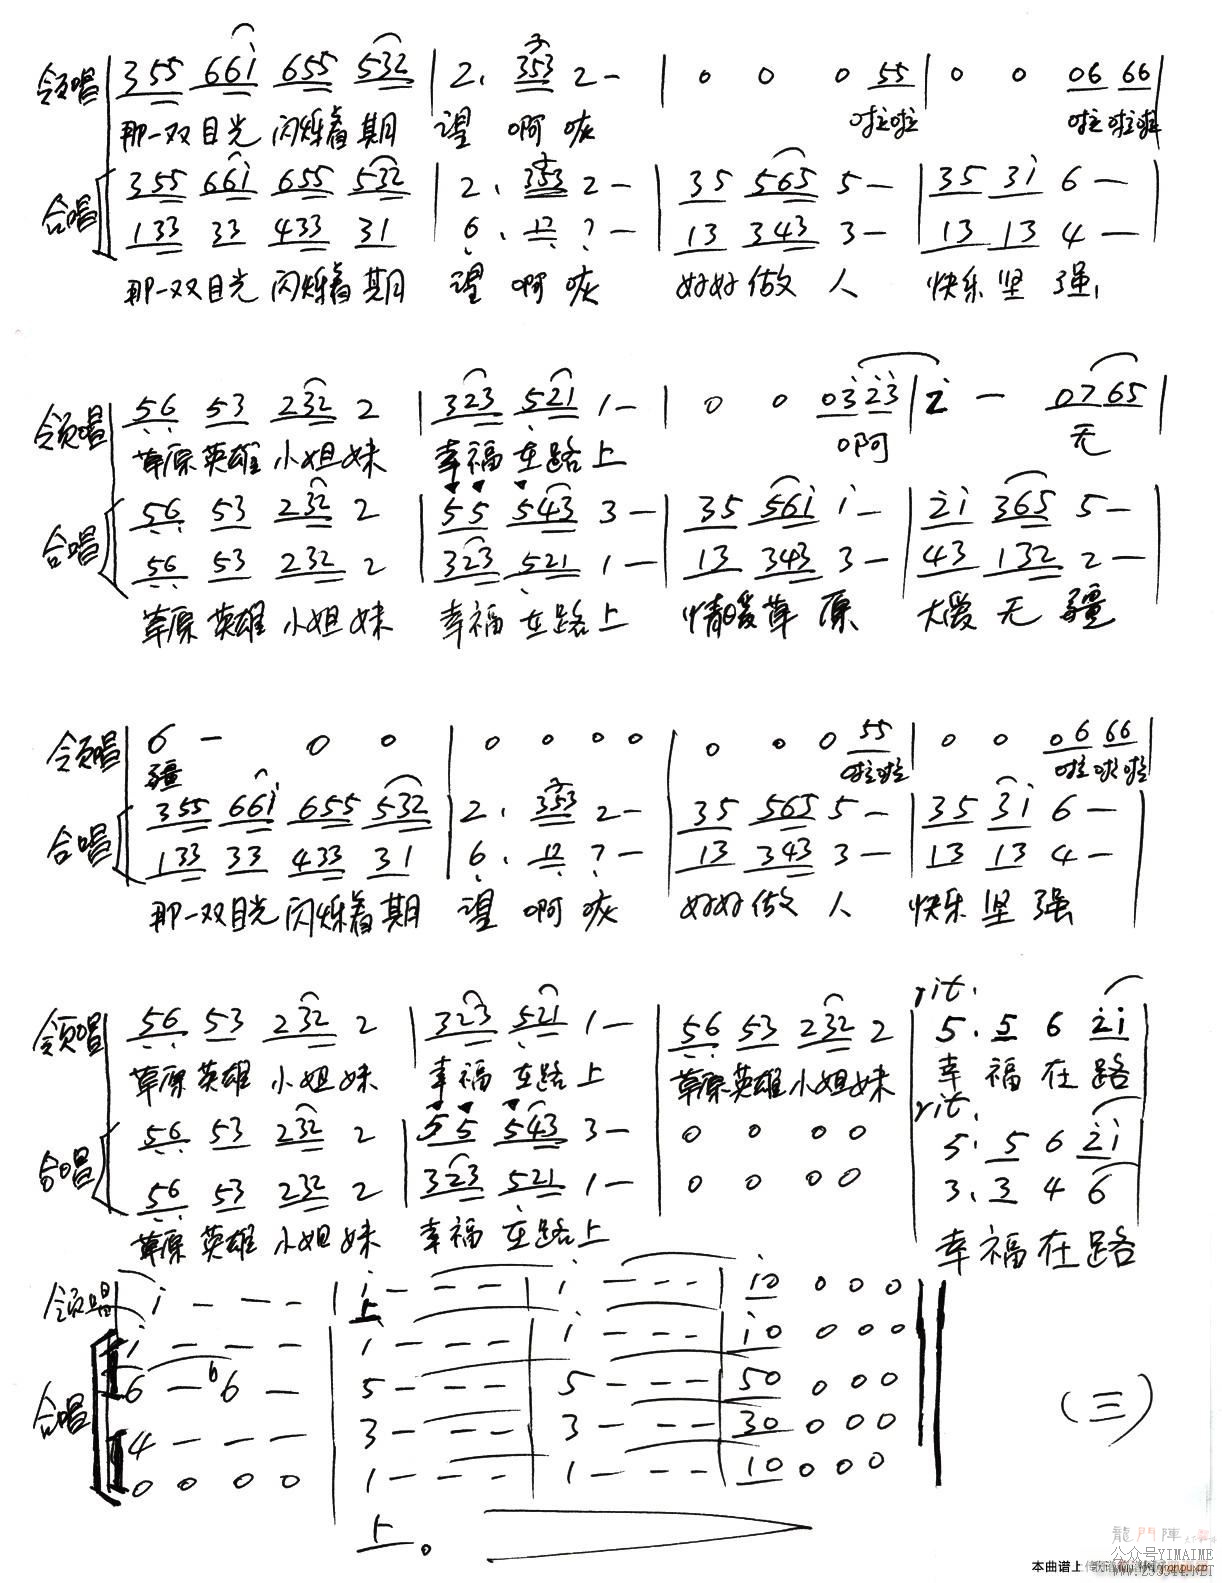 领唱 355 66i 655 532 | 2. 353 2 - | 0 0 0 55 | 0 0 06 66 |
那一双目光 闪烁着 期 望 啊 咴 啦啦 啦啦啦
合唱 355 66i 655 532 | 2. 353 2 - | 35 565 5 - | 35 3i 6 - |
133 33 433 31 | 6. 12 7 - | 13 343 3 - | 13 13 4 - |
那一双目光 闪烁着 期 望 啊 咴 好好做 人 快乐 坚 强,
领唱 56 53 232 2 | 323 521 1 - | 0 0 03 i23 | 2 - 0765 |
草原 英雄 小姐 妹 幸福 在路上 啊 无
合唱 56 53 232 2 | 55 543 3 - | 35 56i i - | 2i 365 5 - |
56 53 232 2 | 323 521 1 - | 13 343 3 - | 43 132 2 - |
草原 英雄 小姐 妹 幸福 在路上 情暖草 原 大爱 无 疆
领唱 6 - 0 0 | 0 0 0 0 | 0 0 0 55 | 0 0 06 66 |
疆 啦啦 啦啦啦
合唱 355 66i 655 532 | 2. 353 2 - | 35 565 5 - | 35 3i 6 - |
133 33 433 31 | 6. 12 7 - | 13 343 3 - | 13 13 4 - |
那一双目光 闪烁着 期 望 啊 咴 好好 做 人 快乐 坚 强
rit.
领唱 56 53 232 2 | 323 521 1 - | 56 53 232 2 | 5. 5 6 2i |
草原 英雄 小姐 妹 幸福 在路上 草原英雄小姐妹 幸 福 在 路
rit.
合唱 56 53 232 2 | 55 543 3 - | 0 0 0 0 | 5. 5 6 2i |
56 53 232 2 | 323 521 1 - | 0 0 0 0 | 3. 3 4 6 |
草原 英雄 小姐 妹 幸福 在路上 幸 福 在 路
领唱 i - - - | i - - - | i - - - | i0 0 0 0 |
上
合唱 i - - - | 1 - - - | i - - - | i0 0 0 0 |
6 - 6 6 - | 5 - - - | 5 - - - | 50 0 0 0 |
4 - - - | 3 - - - | 3 - - - | 30 0 0 0 |
0 0 0 0 | 1 - - - | 1 - - - | 10 0 0 0 |
上。
(三)
龍門陣
公众号YIMAIME
本曲谱上传